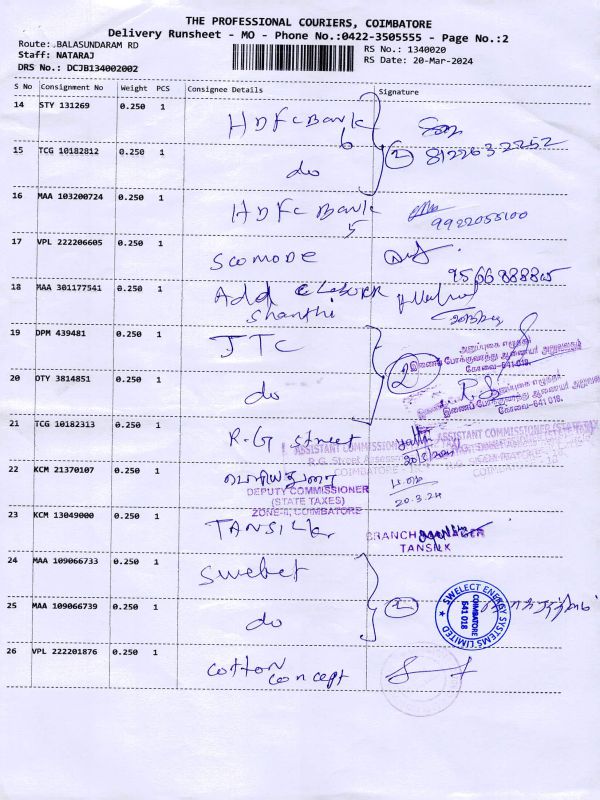 THE PROFESSIONAL COURIERS, COIMBATORE
Delivery Runsheet - MO - Phone No.:0422-3505555 - Page No.:2
Route: .BALASUNDARAM RD
RS No.: 1340020
Staff: NATARAJ
RS Date: 20-Mar-2024
DRS No.: DCJB134002002
S No Consignment No Weight PCS Consignee Details Signature
14 STY 131269 0.250 1 HDFC Bank 6
15 TCG 10182812 0.250 1 do (2) 8122632252
16 MAA 103200724 0.250 1 HDFC Bank 5 9922055100
17 VPL 222206605 0.250 1 SCOMODE
18 MAA 301177541 0.250 1 Add Labour
Shanthi
19 DPM 439481 0.250 1 JTC
அனுப்புகை எழுத்தர்
இணைப் போக்குவரத்து ஆணையர் அலுவலகம்
கோவை-641 018.
20 DTY 3814851 0.250 1 do (2)
அனுப்புகை எழுத்தர்
இணைப் போக்குவரத்து ஆணையர் அலுவலகம்
கோவை-641 018.
21 TCG 10182313 0.250 1 R.G street
ASSISTANT COMMISSIONER (STATE TAX)
22 KCM 21370107 0.250 1 20.3.24
DEPUTY COMMISSIONER
(STATE TAXES)
ZONE-4, COIMBATORE
23 KCM 13049000 0.250 1 TANSILK
BRANCH MANAGER
TANSILK
24 MAA 109066733 0.250 1 Swelect
25 MAA 109066739 0.250 1 do (2)
SWELECT ENERGY SYSTEMS LIMITED
COIMBATORE
641 018
26 VPL 222201876 0.250 1 cotton
concept